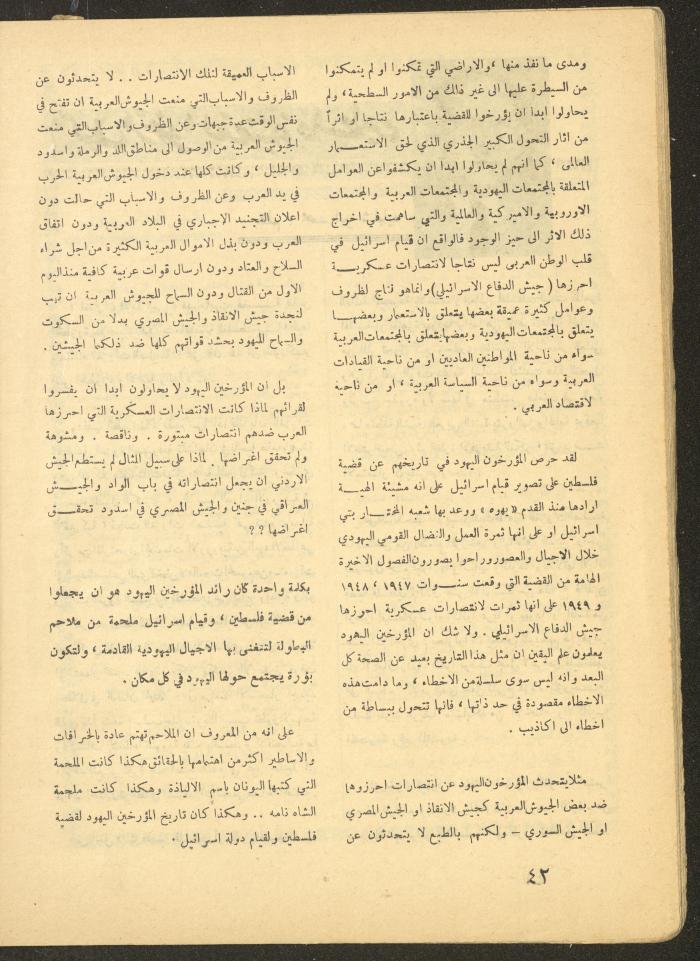 ومدى ما نفذ منها ، والاراضي التي تمكنوا او لم يتمكنوا
من السيطرة عليها الى غير ذلك من الامور السطحية ، ولم
يحاولوا ابدا ان يؤرخوا للقضية باعتبارها نتاجا او اثراً
من اثار التحول الكبير الجذري الذي لحق الاستعمار
العالمى ، كما انهم لم يحاولوا ابدا ان يكشفوا عن العوامل
المتعلقة بالمجتمعات اليهودية والمجتمعات العربية والمجتمعات
الاوروبية والاميركية والعالمية والتي ساهمت في اخراج
ذلك الاثر الى حيز الوجود فالواقع ان قيام اسرائيل في
قلب الوطن العربي ليس نتاجا لانتصارات عسكرية
احرزها ( جيش الدفاع الاسرائيلي) وانما هو نتاج لظروف
وعوامل كثيرة عميقة بعضها يتعلق بالاستعمار وبعضها
يتعلق بالمجتمعات اليهودية وبعضها يتعلق بالمجتمعات العربية
سواه من ناحية المواطنين العاديين او من ناحية القيادات
العربية وسواه من ناحية السياسة العربية ، او من ناحية
لاقتصاد العربي .
لقد حرص المؤرخون اليهود في تاريخهم عن قضية
فلسطين على تصوير قيام اسرائيل على انه مشيئة الهية
ارادها منذ القدم « يهوه » ووعد بها شعبه المختار بني
اسرائيل او على انها ثمرة العمل والنضال القومي اليهودي
خلال الاجيال والعصور وراحوا يصورون الفصول الاخيرة
الهامة من القضية التي وقعت سنوات ١٩٤٧ ، ١٩٤٨
و ١٩٤٩ على انها ثمرات لانتصارات عسكرية احرزها
جيش الدفاع الاسرائيلي . ولا شك ان المؤرخين اليهود
يعلمون علم اليقين ان مثل هذا التاريخ بعيد عن الصحة كل
البعد وانه ليس سوى سلسلة من الاخطاء ، وما دامت هذه
الاخطاء مقصودة في حد ذاتها ، فانها تتحول ببساطة من
اخطاء الى اكاذيب .
مثلا يتحدث المؤرخون اليهود عن انتصارات احرزوها
ضد بعض الجيوش العربية كجيش الانقاذ او الجيش المصري
او الجيش السوري – ولكنهم بالطبع لا يتحدثون عن
الاسباب العميقة لتلك الانتصارات . . لا يتحدثون عن
الظروف والاسباب التي منعت الجيوش العربية ان تفتح في
نفس الوقت عدة جبهات وعن الظروف والاسباب التي منعت
الجيوش العربية من الوصول الى مناطق اللد والرملة واسدود
والجليل ، وكانت كلها عند دخول الجيوش العربية الحرب
في يد العرب وعن الظروف والاسباب التي حالت دون
اعلان التجنيد الاجباري في البلاد العربية ودون اتفاق
العرب ودون بذل الاموال العربية الكثيرة من اجل شراء
السلاح والعتاد ودون ارسال قوات عربية كافية منذ اليوم
الاول من القتال ودون السماح للجيوش العربية ان تهب
لنجدة جيش الانقاذ والجيش المصري بدلا من السكوت
والسماح لليهود بحشد قواتهم كلها ضد ذلكما الجيشين .
بل ان المؤرخين اليهود لا يحاولون ابدا ان يفسروا
لقرائهم لماذا كانت الانتصارات العسكرية التي احرزها
العرب ضدهم انتصارات مبتورة . وناقصة . ومشوهة
ولم تحقق اغراضها . لماذا على سبيل المثال لم يستطع الجيش
الاردني ان يجعل انتصاراته في باب الواد والجيش
العراقي في جنين والجيش المصري في اسدود تحقق
اغراضها ؟ ؟
بكلمة واحدة كان رائد المؤرخين اليهود هو ان يجعلوا
من قضية فلسطين ، وقيام اسرائيل ملحمة من ملاحم
البطولة لتتغنى بها الاجيال اليهودية القادمة ، ولتكون
بؤرة يجتمع حولها اليهود في كل مكان .
على انه من المعروف ان الملاحم تهتم عادة بالخرافات
والاساطير اكثر من اهتمامها بالحقائق هكذا كانت الملحمة
التي كتبها اليونان باسم الالياذة وهكذا كانت ملحمة
الشاه نامه . . وهكذا كان تاريخ المؤرخين اليهود لقضية
فلسطين ولقيام دولة اسرائيل .
٤٢